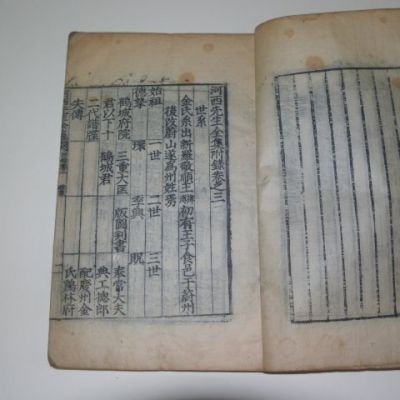 河西先生全集附錄卷之三
世系
金氏系出新羅敬順王初有王子食邑于蔚州
後改蔚山遂爲州姓焉
始祖 一世 二世 三世
德摯 環 季興 貺
鶴城府院 三重大匡 版圖判書 奉常大夫
君以下十 鶴城君 典工摠郎
二代譜牒 配慶州金
失傳 氏鷄林府